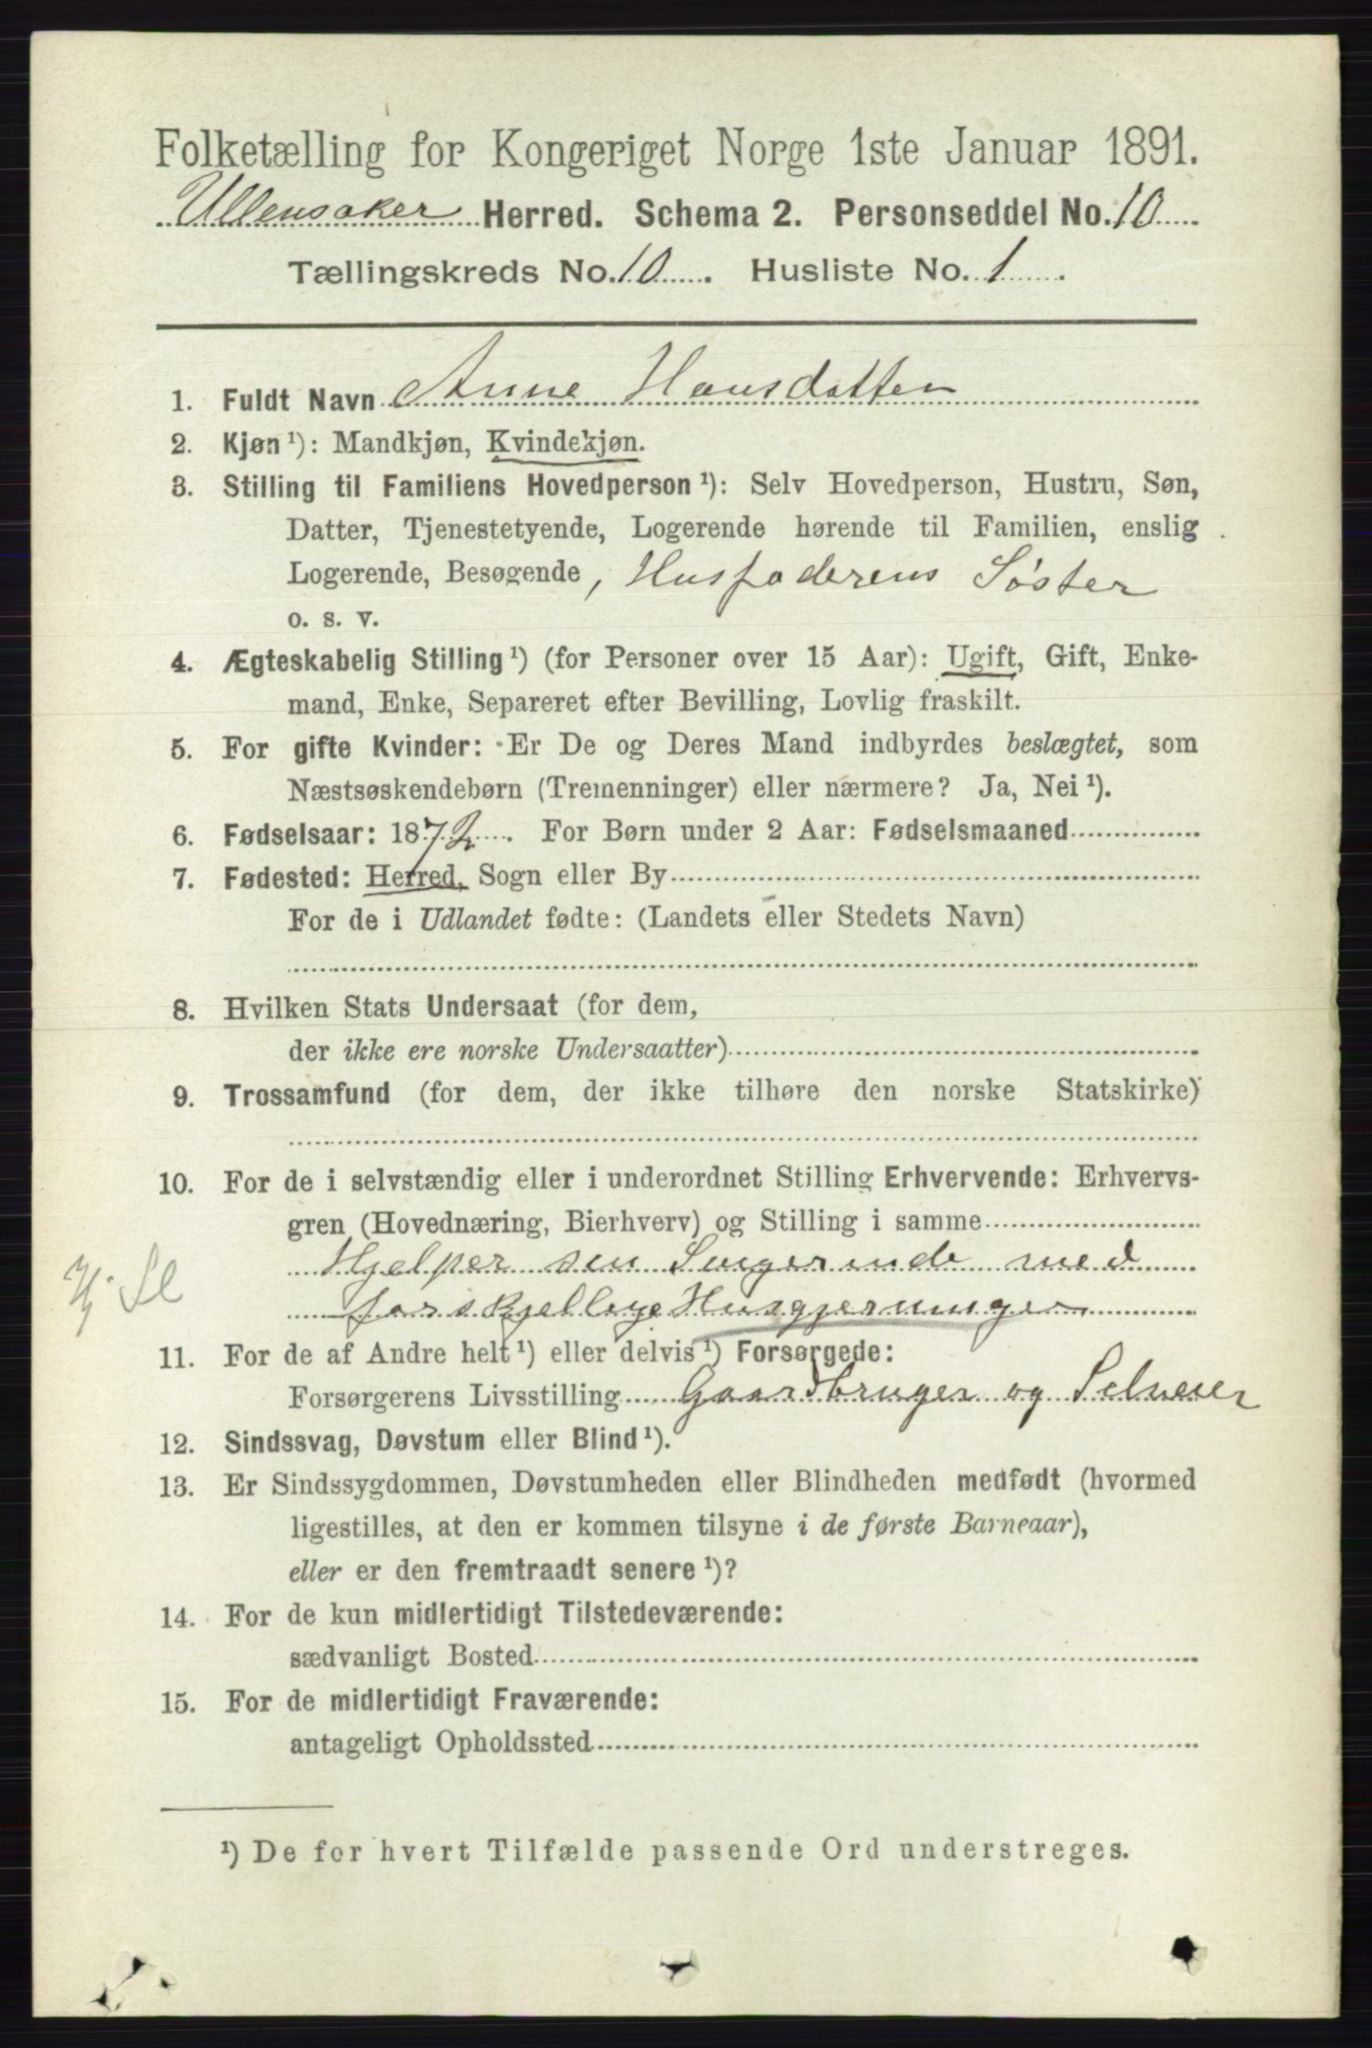 Folketælling for Kongeriget Norge 1ste Januar 1891.
Ullensaker Herred. Schema 2. Personseddel No. 10
Tællingskreds No. 10. Husliste No. 1.
1. Fuldt Navn Anne Hansdatter
2. Kjøn ¹): Mandkjøn, Kvindekjøn.
3. Stilling til Familiens Hovedperson ¹): Selv Hovedperson, Hustru, Søn,
Datter, Tjenestetyende, Logerende hørende til Familien, enslig
Logerende, Besøgende, Husfaderens Søster
o. s. v.
4. Ægteskabelig Stilling ¹) (for Personer over 15 Aar): Ugift, Gift, Enke-
mand, Enke, Separeret efter Bevilling, Lovlig fraskilt.
5. For gifte Kvinder: Er De og Deres Mand indbyrdes beslægtet, som
Næstsøskendebørn (Tremenninger) eller nærmere? Ja, Nei ¹).
6. Fødselsaar: 1872. For Børn under 2 Aar: Fødselsmaaned
7. Fødested: Herred, Sogn eller By
For de i Udlandet fødte: (Landets eller Stedets Navn)
8. Hvilken Stats Undersaat (for dem,
der ikke ere norske Undersaatter)
9. Trossamfund (for dem, der ikke tilhøre den norske Statskirke)
10. For de i selvstændig eller i underordnet Stilling Erhvervende: Erhvervs-
gren (Hovednæring, Bierhverv) og Stilling i samme
Hjelper sin Svigerinde med
Hj. Sl
forskjellige Husgjerninger
11. For de af Andre helt ¹) eller delvis ¹) Forsørgede:
Forsørgerens Livsstilling Gaardbruger og Selveier
12. Sindssvag, Døvstum eller Blind ¹).
13. Er Sindssygdommen, Døvstumheden eller Blindheden medfødt (hvormed
ligestilles, at den er kommen tilsyne i de første Barneaar),
eller er den fremtraadt senere ¹)?
14. For de kun midlertidigt Tilstedeværende:
sædvanligt Bosted
15. For de midlertidigt Fraværende:
antageligt Opholdssted
¹) De for hvert Tilfælde passende Ord understreges.